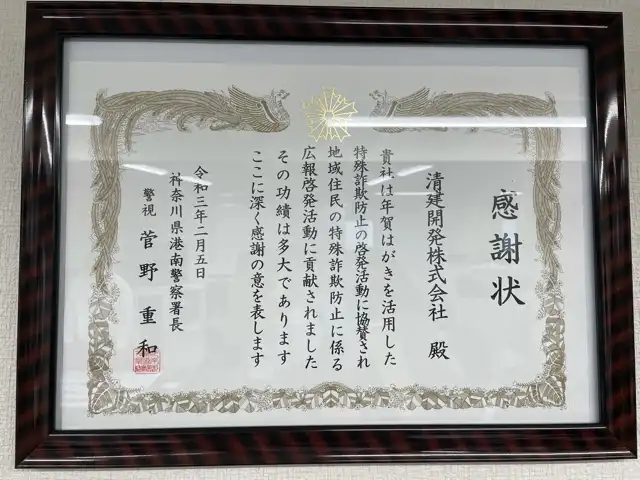 感謝状
清建開発株式会社 殿
貴社は年賀はがきを活用した
特殊詐欺防止の啓発活動に協賛され
地域住民の特殊詐欺防止に係る
広報啓発活動に貢献されました
その功績は多大であります
ここに深く感謝の意を表します
令和三年二月五日
神奈川県港南警察署長
警視 菅野重和